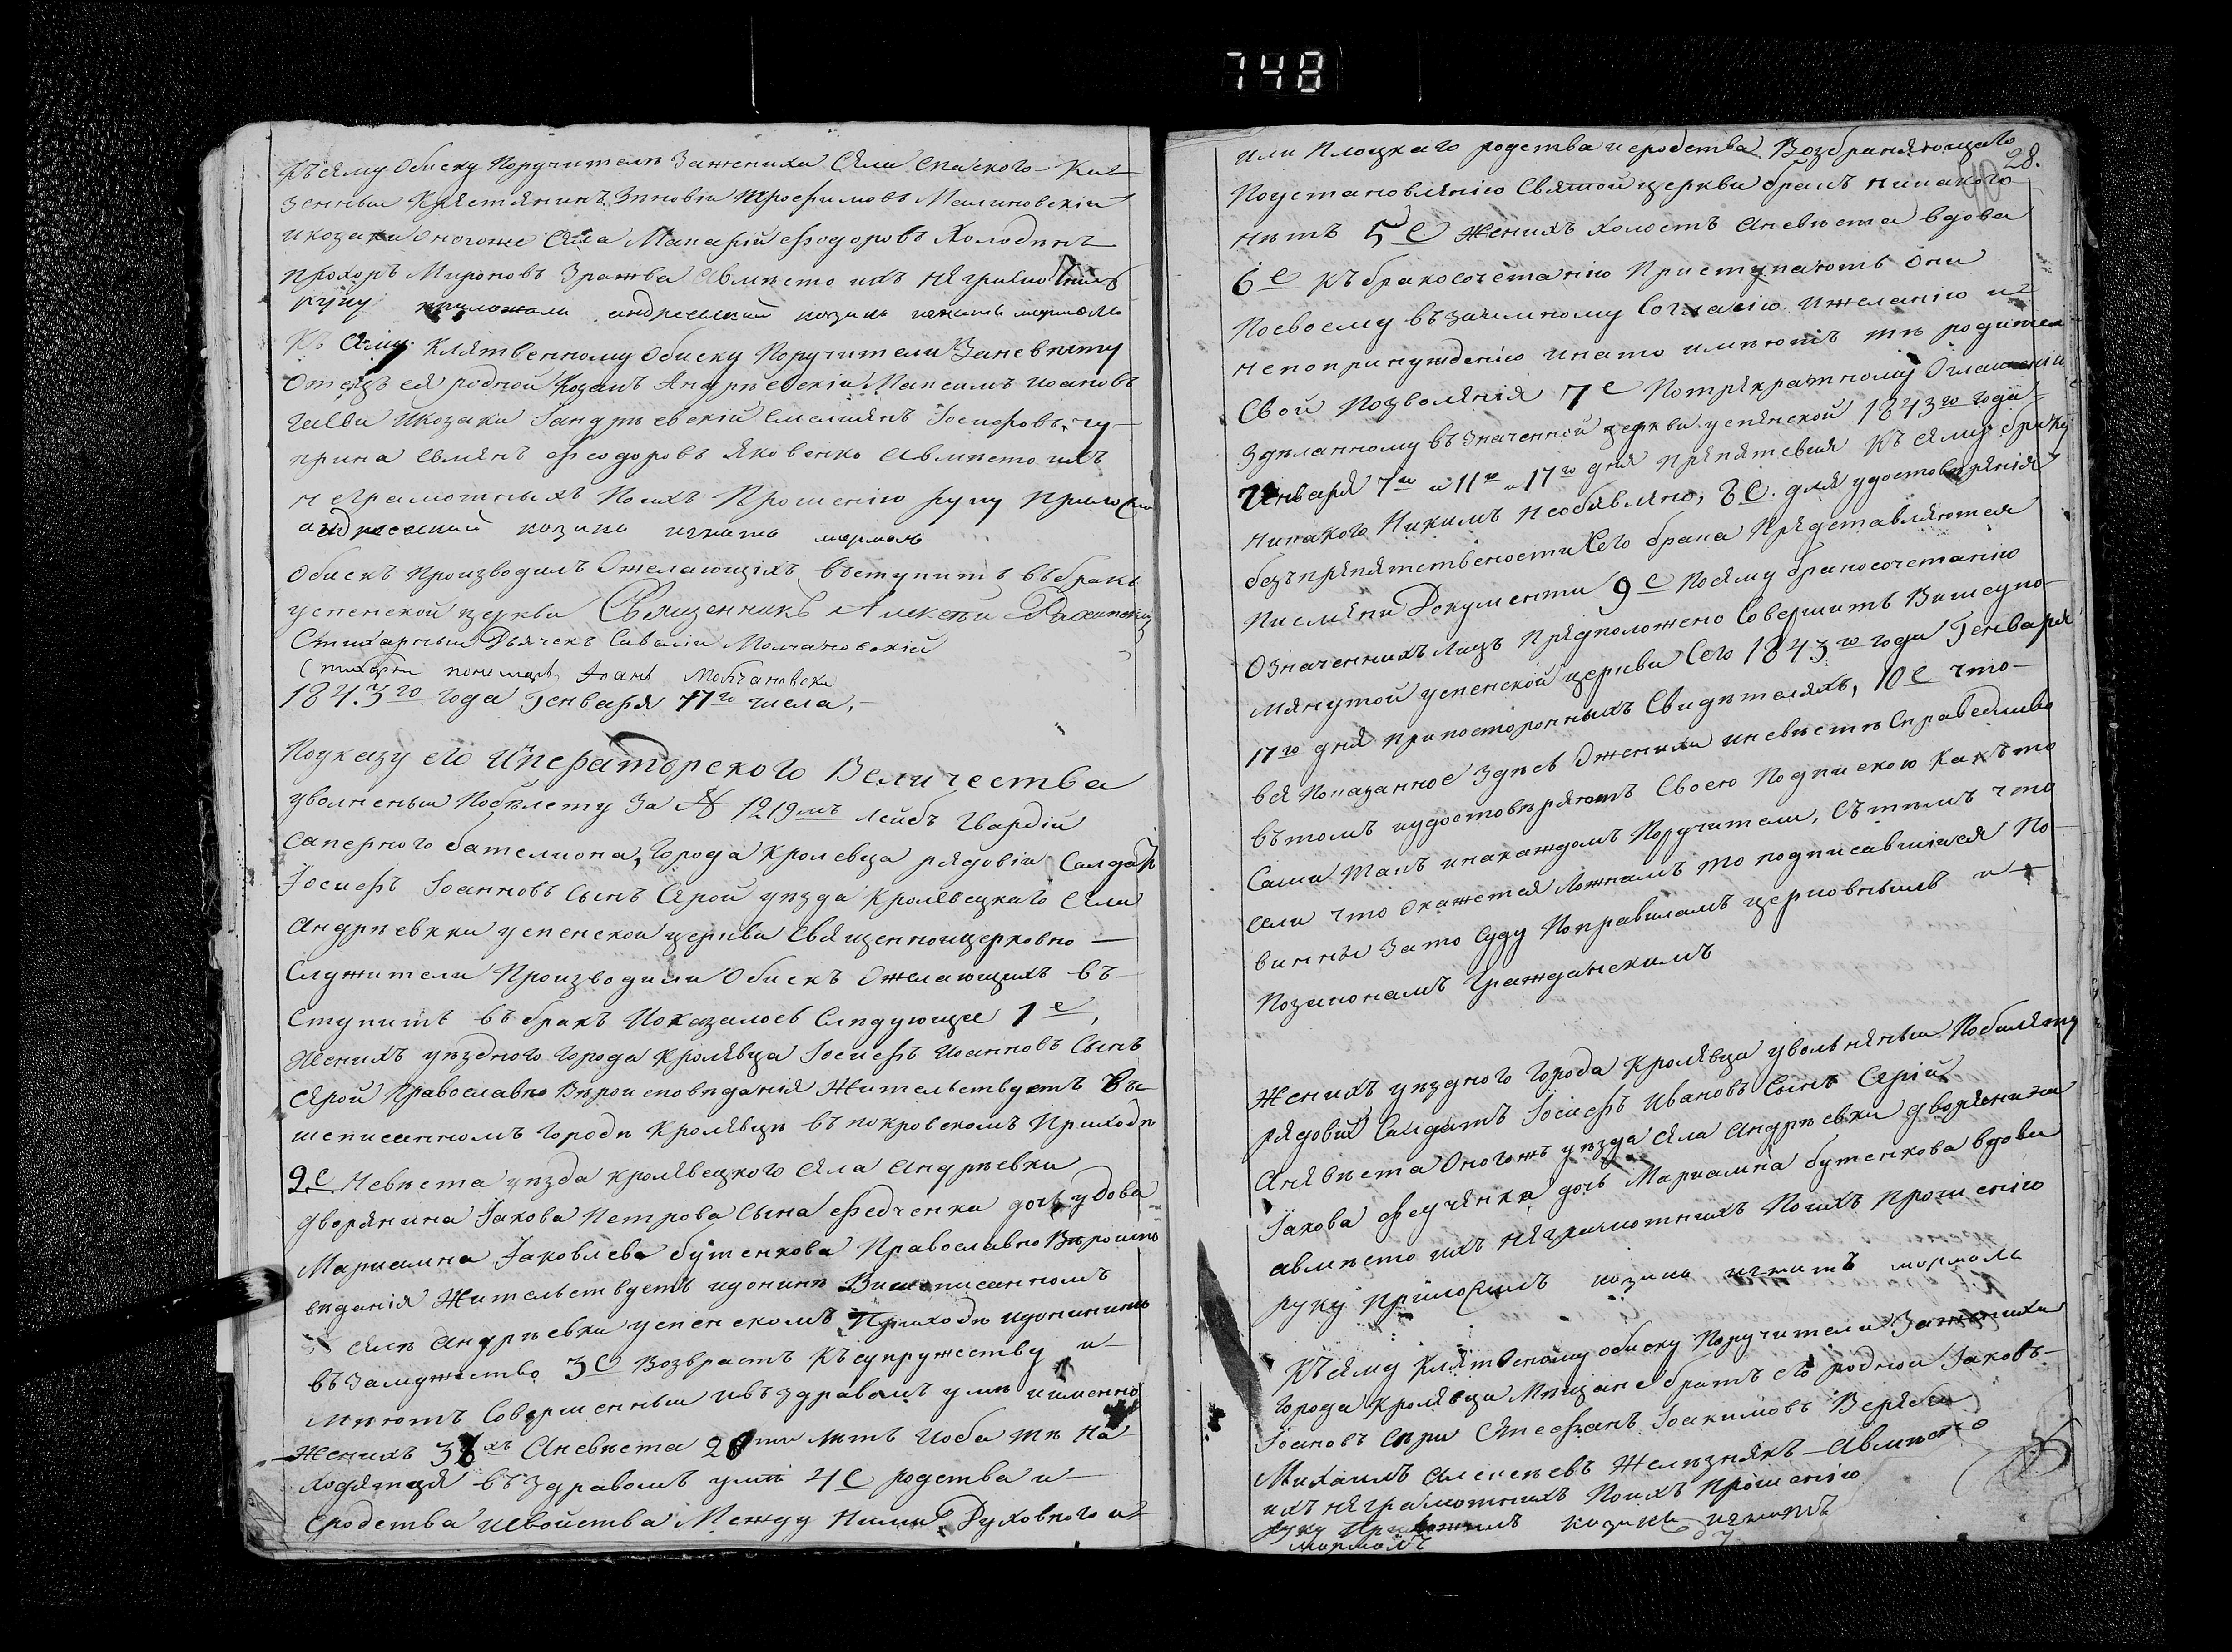 748
Къ сему обыску Поручители За жениха Села Спаского Ка-
зенный Крестянинъ Зиновій Трофимовъ Малиновскій
и козаки оногоже Села Макарій Феодоровъ Холодинъ
Прохоръ Мироновъ Зражва авместо ихъ неграмотних
руку приложилъ андреевкий козакъ игнатъ мормоль
Къ Сему Клятвенному Обиску Поручители Заневесту
Отецъ ея родной Козакъ Андреевскій Максимъ Иоановъ
и козаки Іандреевскій Емелиянъ Іосифовъ чу-
прина Семенъ Феодоровъ Яковенко авместо ихъ
неграмотныхъ Поихъ Прошенію руку Приложил
андреевский козакъ игнатъ мормоль
Обискъ Производилъ Ожелающихъ вступитъ въ бракъ
успенской церкви Священникъ Алексей
Стихарный Дьячекъ Савелій Молчановскій
Стихарный пономарь Іоанъ Молчановски
1843го года Генваря 17го числа.
Поуказу его Императорского Величества
уволненый Побилету За № 1219мъ лейбъ Гвардій
саперного бателиона, города Кролевца рядовій Салдатъ
Іосифъ Іоанновъ Сынъ Серой уезда Кролевецкаго Села
Андреевкки успенской церкви Священноцерковно
Служители Производили Обискъ Ожелающихъ въ
ступить въбракъ Показалось Следующее 1е,
Женихъ уездного города Кролевца Іосифъ Иоанновъ Сынъ
Серой Православно Вероисповеданія Жительствуетъ Ви-
шеписанномъ городе Кролевце въ покровскомъ Приходе
2е. Невеста уезда кролевецкого Села андреевки
дворянина Іакова Петрова Сына Федченки дочь удова
Мариамна Іаковлева бутенкова Православно Вероиспо
веданія Жительствуетъ идонине Вишеписанномъ
селе андреевки успенскомъ Приходе идонинины
въ Замужество 3е Возврастъ Къ супружеству и-
меютъ Совершенный ивъздравомъ уме иименно
Женихъ 38хъ Аневеста 26ти летъ Иоба те На
ходятця въздравомъ уме 4е родства и
сродства исвойства Между Ними Духовного и
28.
или Плоцкаго родства исродства Возбраняющаго
Поустановленію Святой церкви бракъ никакого
нетъ 5е Женихъ холостъ Аневеста вдова
6е Къ бракосочетанію Приступаютъ Они
Посвоему възаимному Согласію ижеланію и
непопринужденію инато имеютъ те родител
Свой Позволенія 7е Потрекратному Оглашеніи
Зделанному въ Значенной церкви успенской 1843го года
Генваря 7го и 11го и 17го дня препятствія Къ сему браку
никакого Никимъ необявлено, 8е. для удостоверенія
безъпрепятственности Сего брака Представляются
Писмени Документи 9е Посему бракосочетанію
Означеннихъ лицъ Предположено Совершитъ Вишеупо
мянутой успенской церкви Сего 1843го года Генваря
17го дня припосторонныхъ Свидетеляхъ, 10е что
вся Показанное Здесь Ожениха иневесте Справедливо
въ томъ иудостоверяютъ Своею Подпискою Какъ то
Сами такъ инакаждомъ Поручители, Съ темъ что
если что Окажется ложнамъ то подписавшийся По
винны Зато Суду Поправиламъ церковнымъ и
Позаконамъ Гражданскимъ
Женихъ уездного города Кролевца увольненый Побилету
рядовій Салдатъ Іосифъ Ивановъ Сынъ Серій
Аневеста Оногожъ уезда села Андреевки дворянина
Іакова Феученка дочь Мариамна бутенкова вдова
авместо ихъ неграмотнихъ Поихъ Прошенію
руку Приложилъ козакъ игнатъ мормоль
Къ сему Клятвеному обиску Поручители Зажениха
Города Кролевца Мещане братъ его родной Іаковъ
Іоановъ Серий Стефанъ Іоакимовъ
Михаилъ Алексеевъ Железнякъ Авместо
ихъ неграмотнихъ Поихъ Прошенію
руку Приложилъ козакъ игнатъ
мормоль